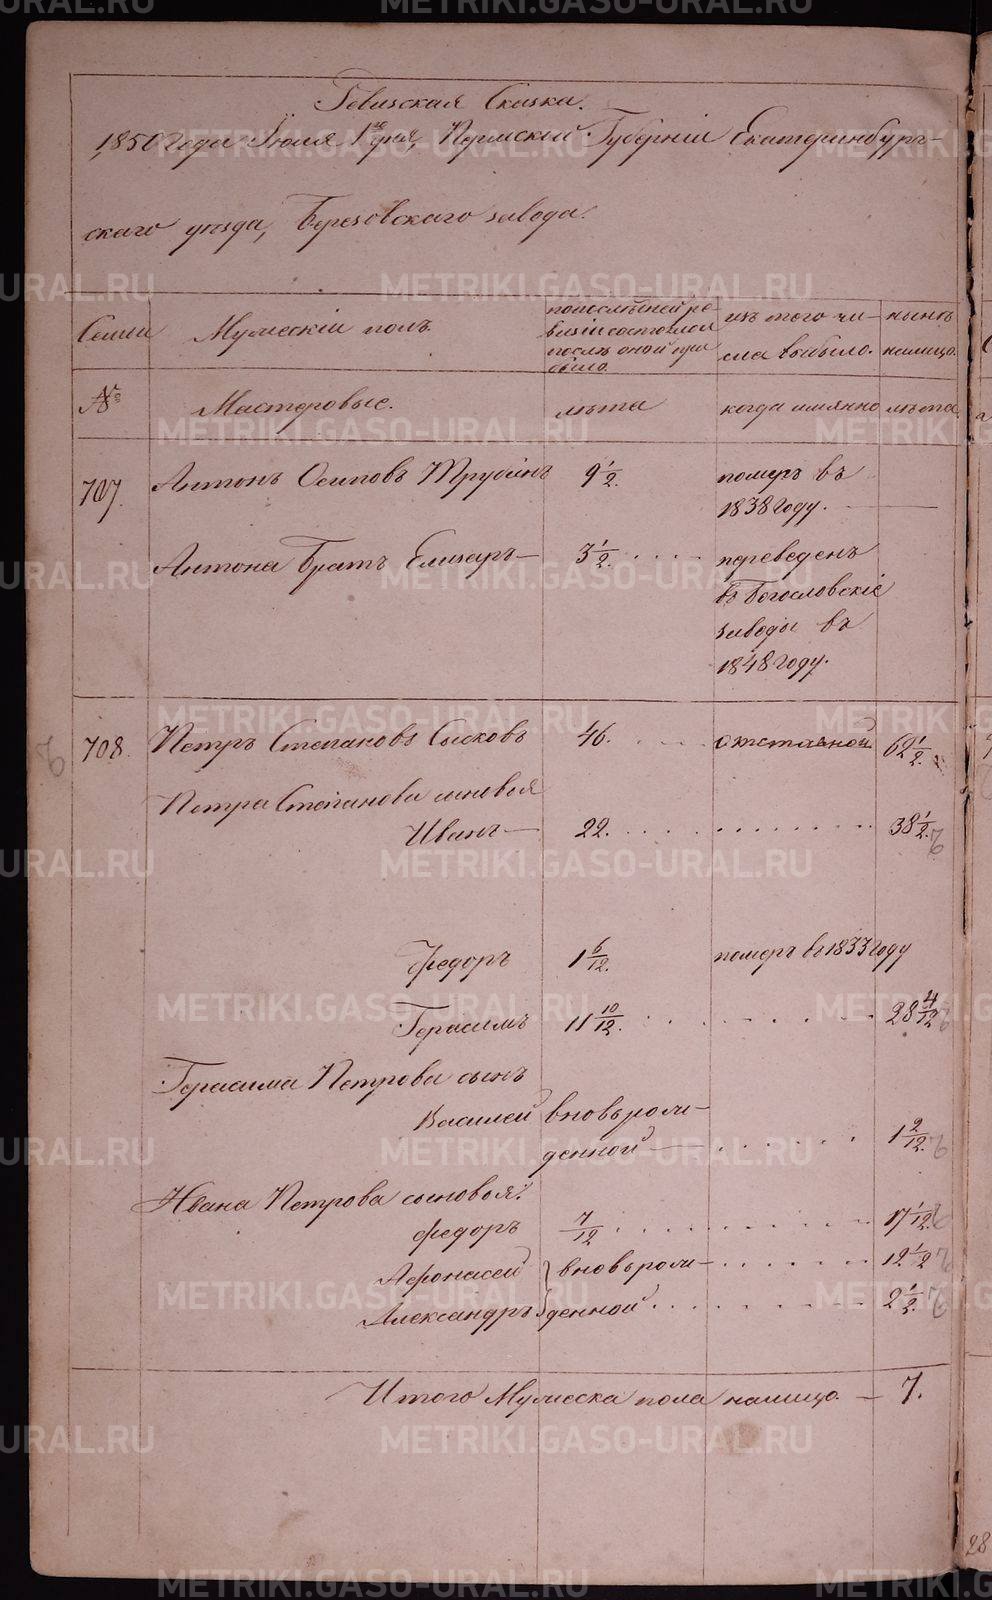 Ревизская Сказка.
1850 года Іюля 1го дня, Пермской Губерніи Екатеринбург-
скаго уѣзда, Березовскаго завода.
Семьи
Мужескій полъ.
попослѣдней ре-
визіи состояло и
послѣ оной при
было.
изъ того чи-
сла выбыло.
нынѣ
налицо.
№
Мастеровые.
лѣта
когда имянно
лѣта.
707.
Антонъ Осиповъ Трубинъ
9 1/2.
померъ въ
1838 году.
Антона братъ Елизаръ
3 1/2.
переведенъ
въ Богословскіе
заводы въ
1848 году.
708.
Петръ Степановъ Сысковъ
46.
отставной
62 1/2.
Петра Степанова сыновья
Иванъ
22.
38 1/2.
Федоръ
1 6/12.
померъ въ 1833 году
Герасимъ
11 10/12.
28 4/12
Герасима Петрова сынъ
Василей
вновьрож-
денной
1 2/12.
Ивана Петрова сыновья:
Федоръ
7/12
17 1/12.
Афонасей
вновьрож-
12 1/2
Александръ
денной
2 1/2.
Итого Мужеска пола налицо.
7.
28
METRIKI.GASO-URAL.RU